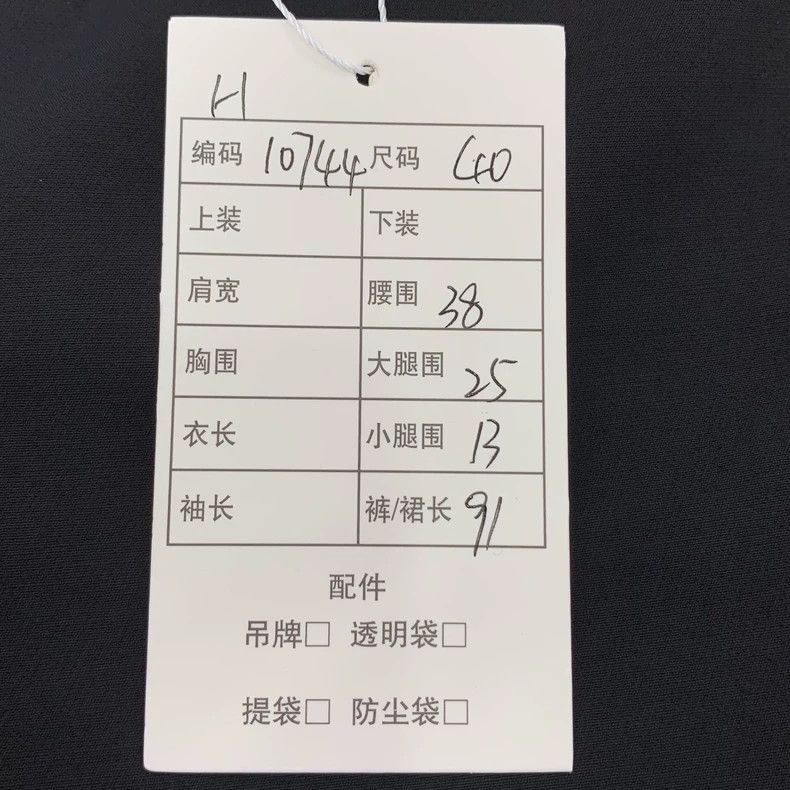 H
编码 10744 尺码 40
上装 下装
肩宽 腰围 38
胸围 大腿围 25
衣长 小腿围 13
袖长 裤/裙长 91
配件
吊牌□ 透明袋□
提袋□ 防尘袋□